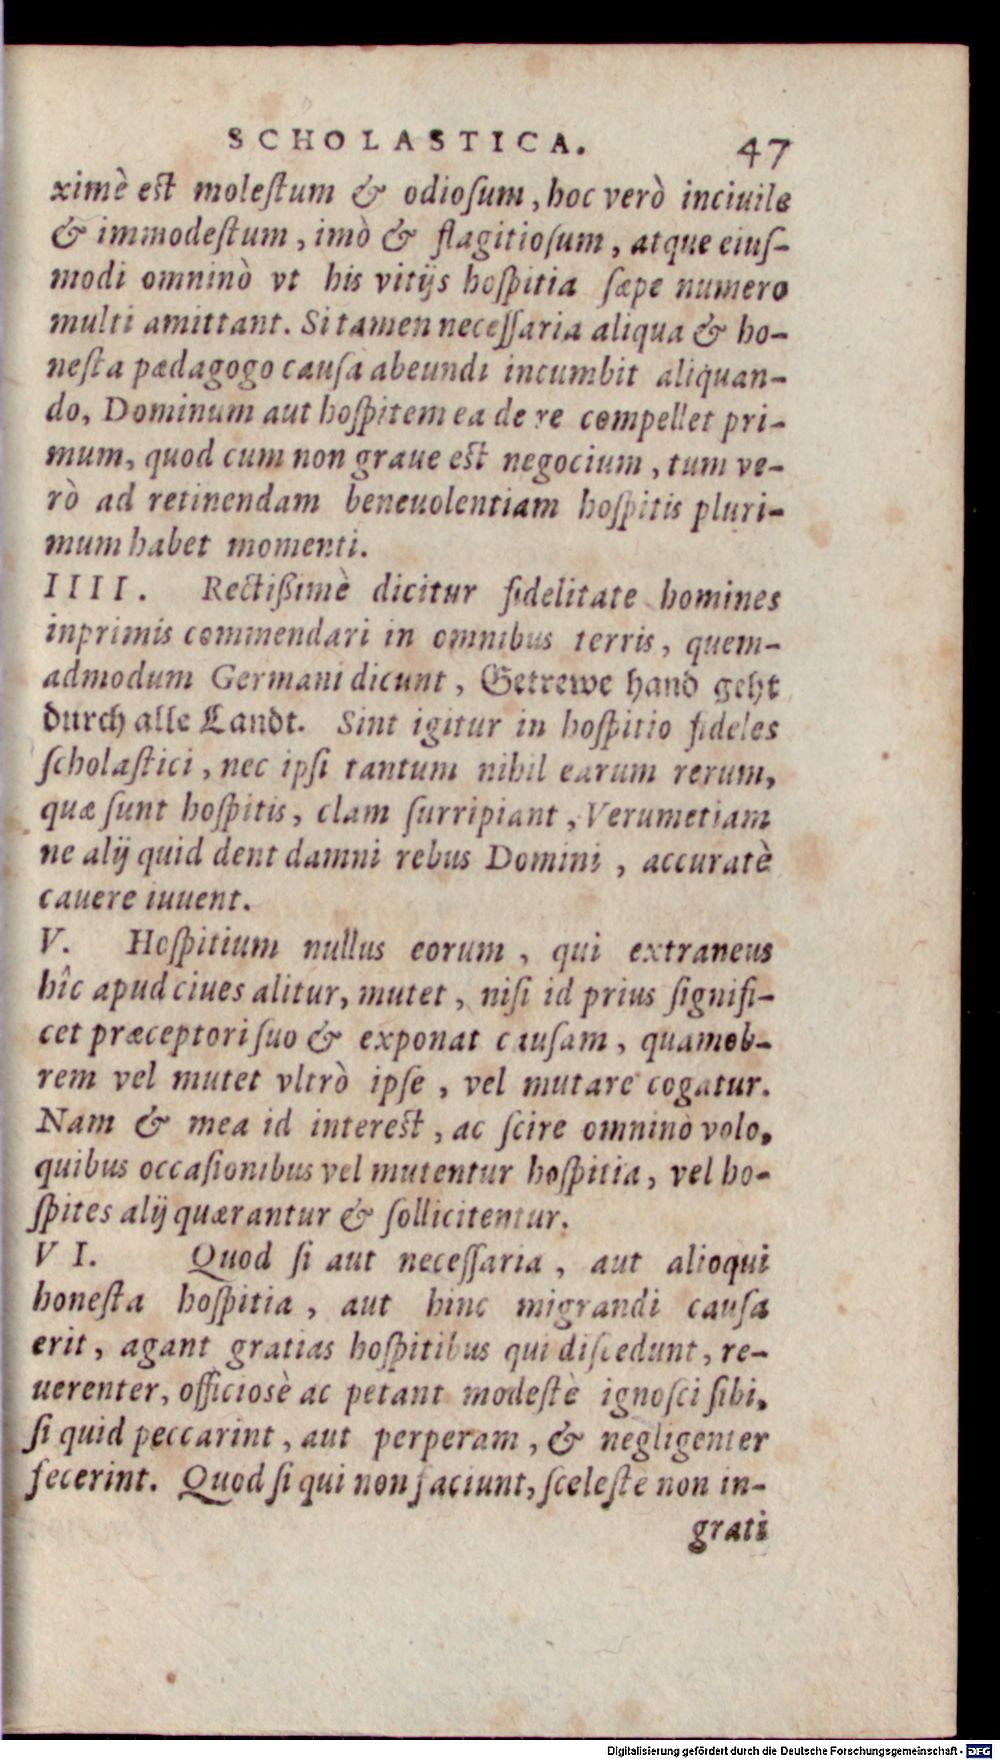 SCHOLASTICA. 47
ximè est molestum & odiosum, hoc verò inciuile
& immodestum, imò & flagitiosum, atque eius-
modi omninò vt his vitijs hospitia sæpe numero
multi amittant. Si tamen necessaria aliqua & ho-
nesta pædagogo causa abeundi incumbit aliquan-
do, Dominum aut hospitem ea de re compellet pri-
mum, quod cum non graue est negocium, tum ve-
rò ad retinendam beneuolentiam hospitis pluri-
mum habet momenti.
IIII. Rectißimè dicitur fidelitate homines
inprimis commendari in omnibus terris, quem-
admodum Germani dicunt, Getrewe hand geht
durch alle Landt. Sint igitur in hospitio fideles
scholastici, nec ipsi tantum nihil earum rerum,
quæ sunt hospitis, clam surripiant, Verumetiam
ne alij quid dent damni rebus Domini, accuratè
cauere iuuent.
V. Hospitium nullus eorum, qui extraneus
hîc apud ciues alitur, mutet, nisi id prius signifi-
cet præceptori suo & exponat causam, quamob-
rem vel mutet vltrò ipse, vel mutare cogatur.
Nam & mea id interest, ac scire omninò volo,
quibus occasionibus vel mutentur hospitia, vel ho-
spites alij quærantur & sollicitentur.
VI. Quod si aut necessaria, aut alioqui
honesta hospitia, aut hinc migrandi causa
erit, agant gratias hospitibus qui discedunt, re-
uerenter, officiosè ac petant modestè ignosci sibi,
si quid peccarint, aut perperam, & negligenter
fecerint. Quod si qui non faciunt, sceleste non in-
grati
Digitalisierung gefördert durch die Deutsche Forschungsgemeinschaft - DFG